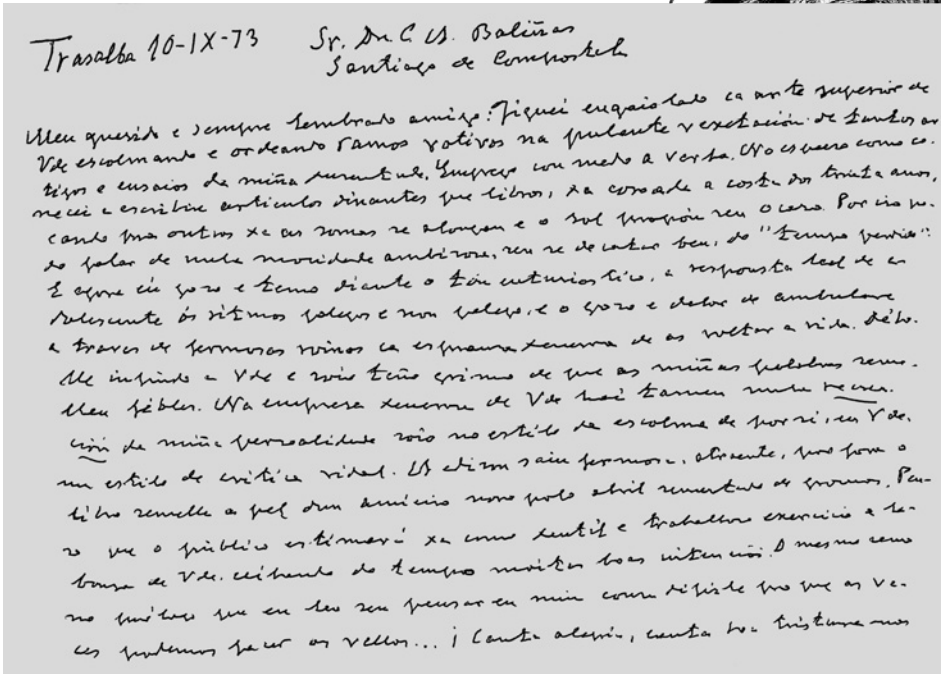 Trasalba 10-IX-73 Sr. Dn. C. A. Baliñas
Santiago de Compostela
Meu querido e sempre lembrado amigo: Fiquei engaiolado ca arte superior de
Vde escolmando e ordeando ramos votivos na pulante vexetación de tantos ar
tigos e ensaios da miña xuventude. Emprego con medo a verba. No espacio como co.
mecei a escribire articulos dinantes que libros, xa coroada a costa dos trinta anos,
cando pra outros xa as somas se alongan e o sol propón seu ocaso. Por iso pu-
do falar de unha mocidade ambiciosa, sen se decatar ben, do "tempo perdido".
E agora eu gozo e temo diante o ton enturiastico, a resposta leal de a
dolescente ós ritmos galegos e non galegos, e o gozo e delor de ambulare
a traves de fermosas roinas ca espranza xenerosa de as voltar a vida. Débo.
lle infindo a Vde e soio teño de que as miñas palabras
llen febles. Na empresa xenerosa de Vde hai tamen unha recrea.
ción da miña persoalidade soio no estilo da escolma de por si, en Vde.
un estilo de critica vidal. A edizon saiu fermosa, atraente, pro fora o
libro semella a pel dun amicício novo polo abril sementado de gromos. Pen-
so que o público estimará xa como xentil e traballoso exercicio a la-
bouza de Vde. ceibando do tempo moitas boas intenciós. O mesmo como
no prólogo que eu leo sen pensar en min coma difiste pro que as ve-
ces podemos facer os vellos... ¡Canta alegria, canta boa tristura nos